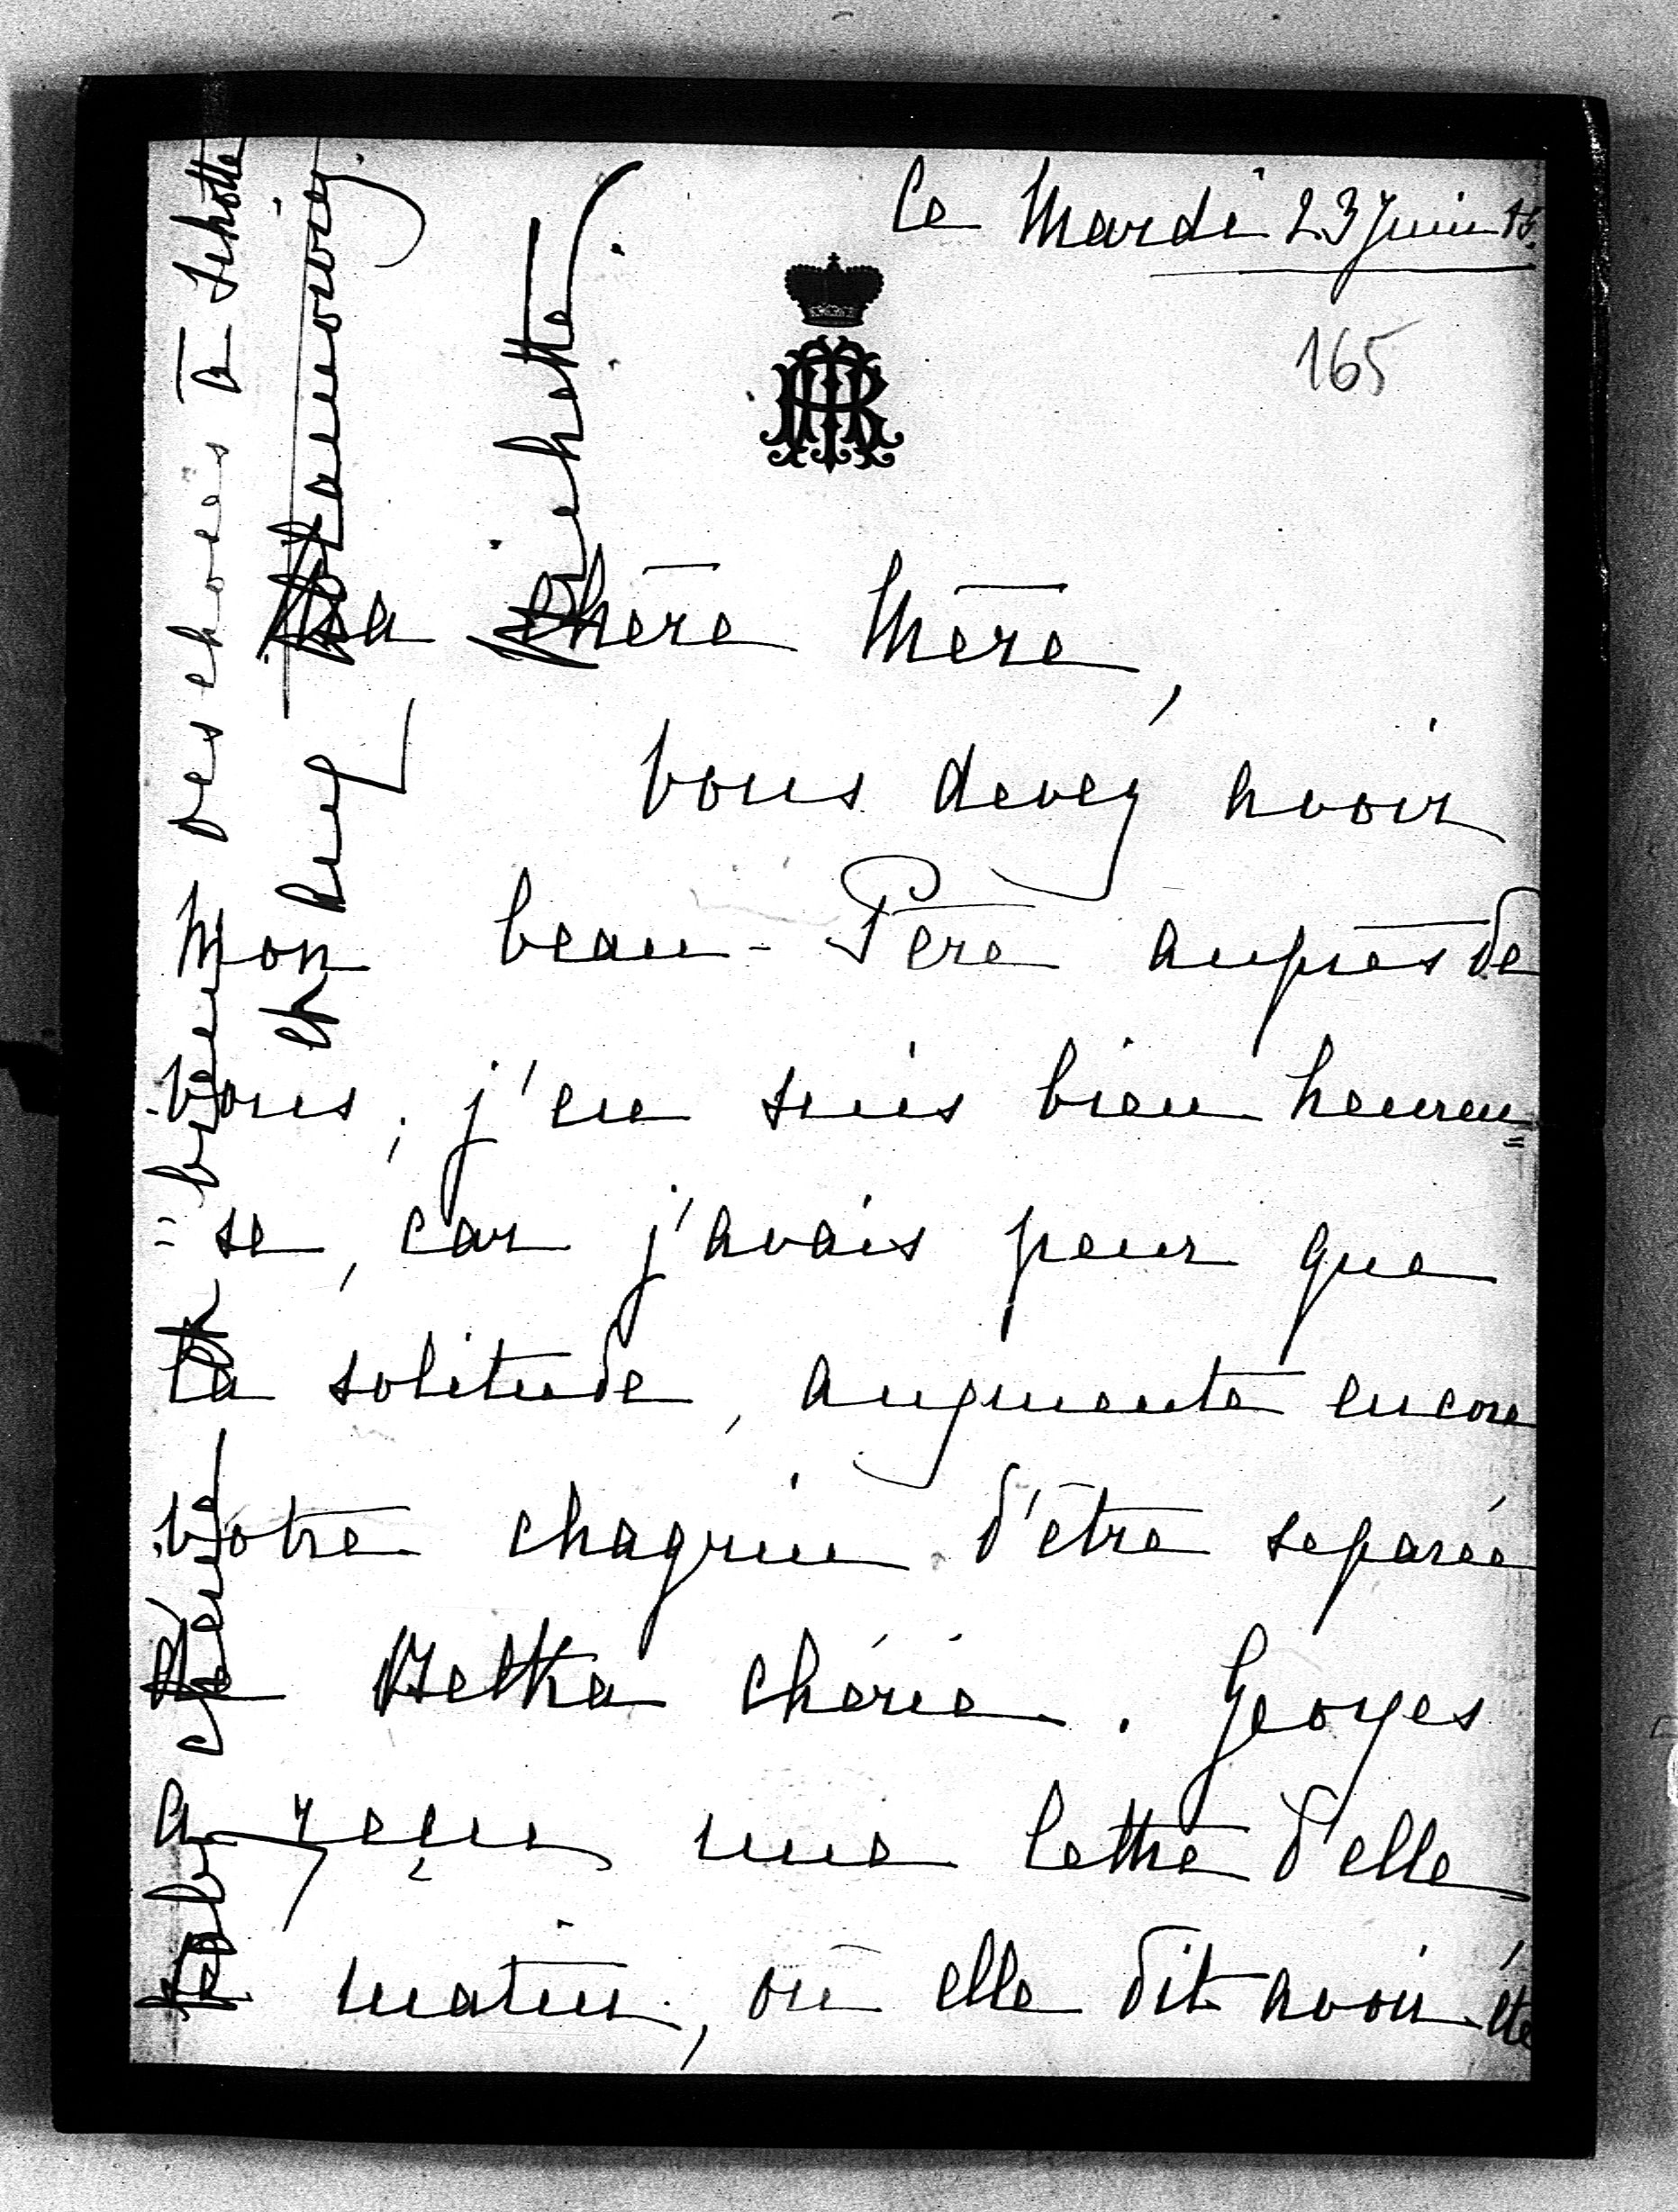 Le Mardi 23 Juin
165
Ma chère Mère,
vous devez avoir
mon beau-Père auprès de
vous, j'en suis bien heureu=
=se, car j'avais peur que
la solitude, augmenta encore
votre chagrin d'être separée
de Metka chérie. Georges
a reçu une lettre d'elle
ce matin, où elle dit avoir été
bien des choses à
et